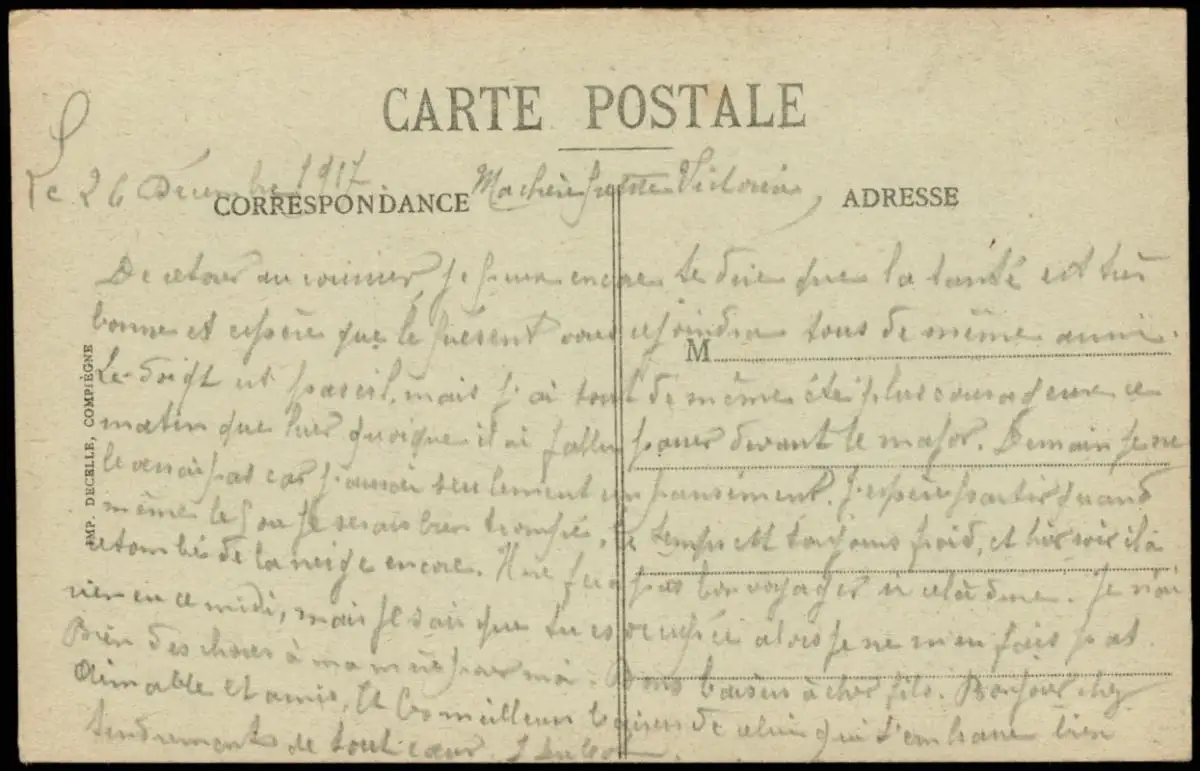 CARTE POSTALE
Le 26 Décembre 1917 Ma chère petite Victoria,
CORRESPONDANCE
ADRESSE
De retour au courrier, je puis encore te dire que la santé est très
bonne et espère que le présent vous rejoindra tous de même aussi.
M
Le doigt est pareil, mais j'ai tout de même été plus courageux ce
matin que hier quoique il ai fallu passer devant le major. Demain je ne
le verrai pas car j'aurai seulement un pansement. J'espère partir quand
même le ou je serais bien trompé, le temps est toujours froid, et hier soir il a
retombé de la neige encore. Il ne fera pas bon voyager si cela dure. Je n'ai
rien eu ce midi, mais je sais que tu es occupée alors je ne m'en fais pas.
Bien des choses à ma mère pour moi. Bons baisers à cher fils. Bonjour chez
Aimable et amis, Et les meilleurs baisers de celui qui t'embrasse bien
tendrement de tout cœur.
IMP. DECELLE, COMPIÈGNE